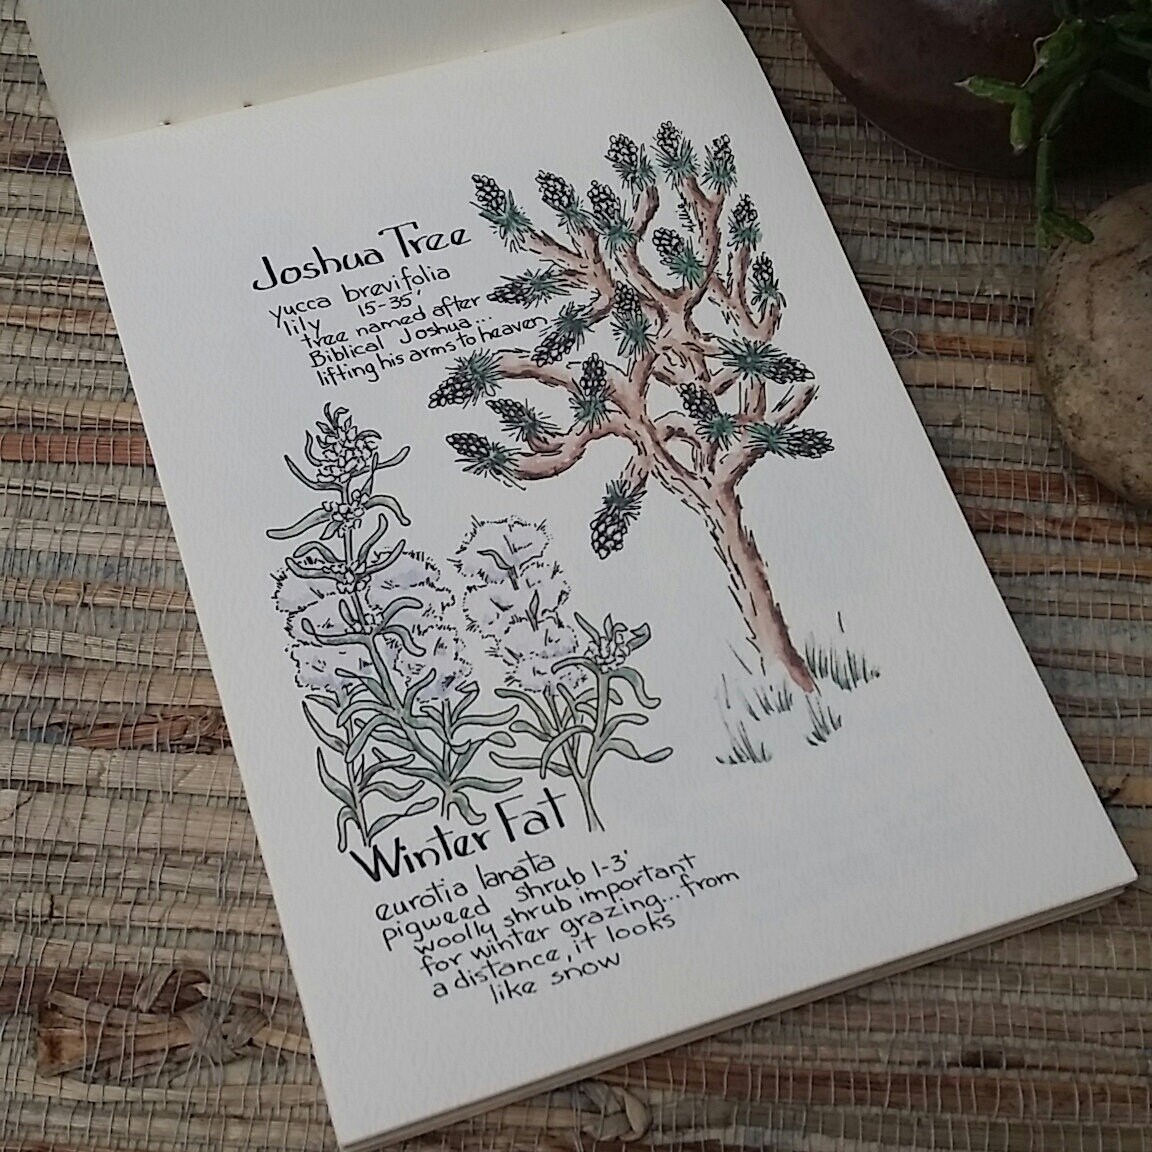 Joshua Tree
yucca brevifolia
lily 15-35'
tree named after
Biblical Joshua...
lifting his arms to heaven
Winter Fat
eurotia lanata
pigweed shrub 1-3'
woolly shrub important
for winter grazing... from
a distance, it looks
like snow